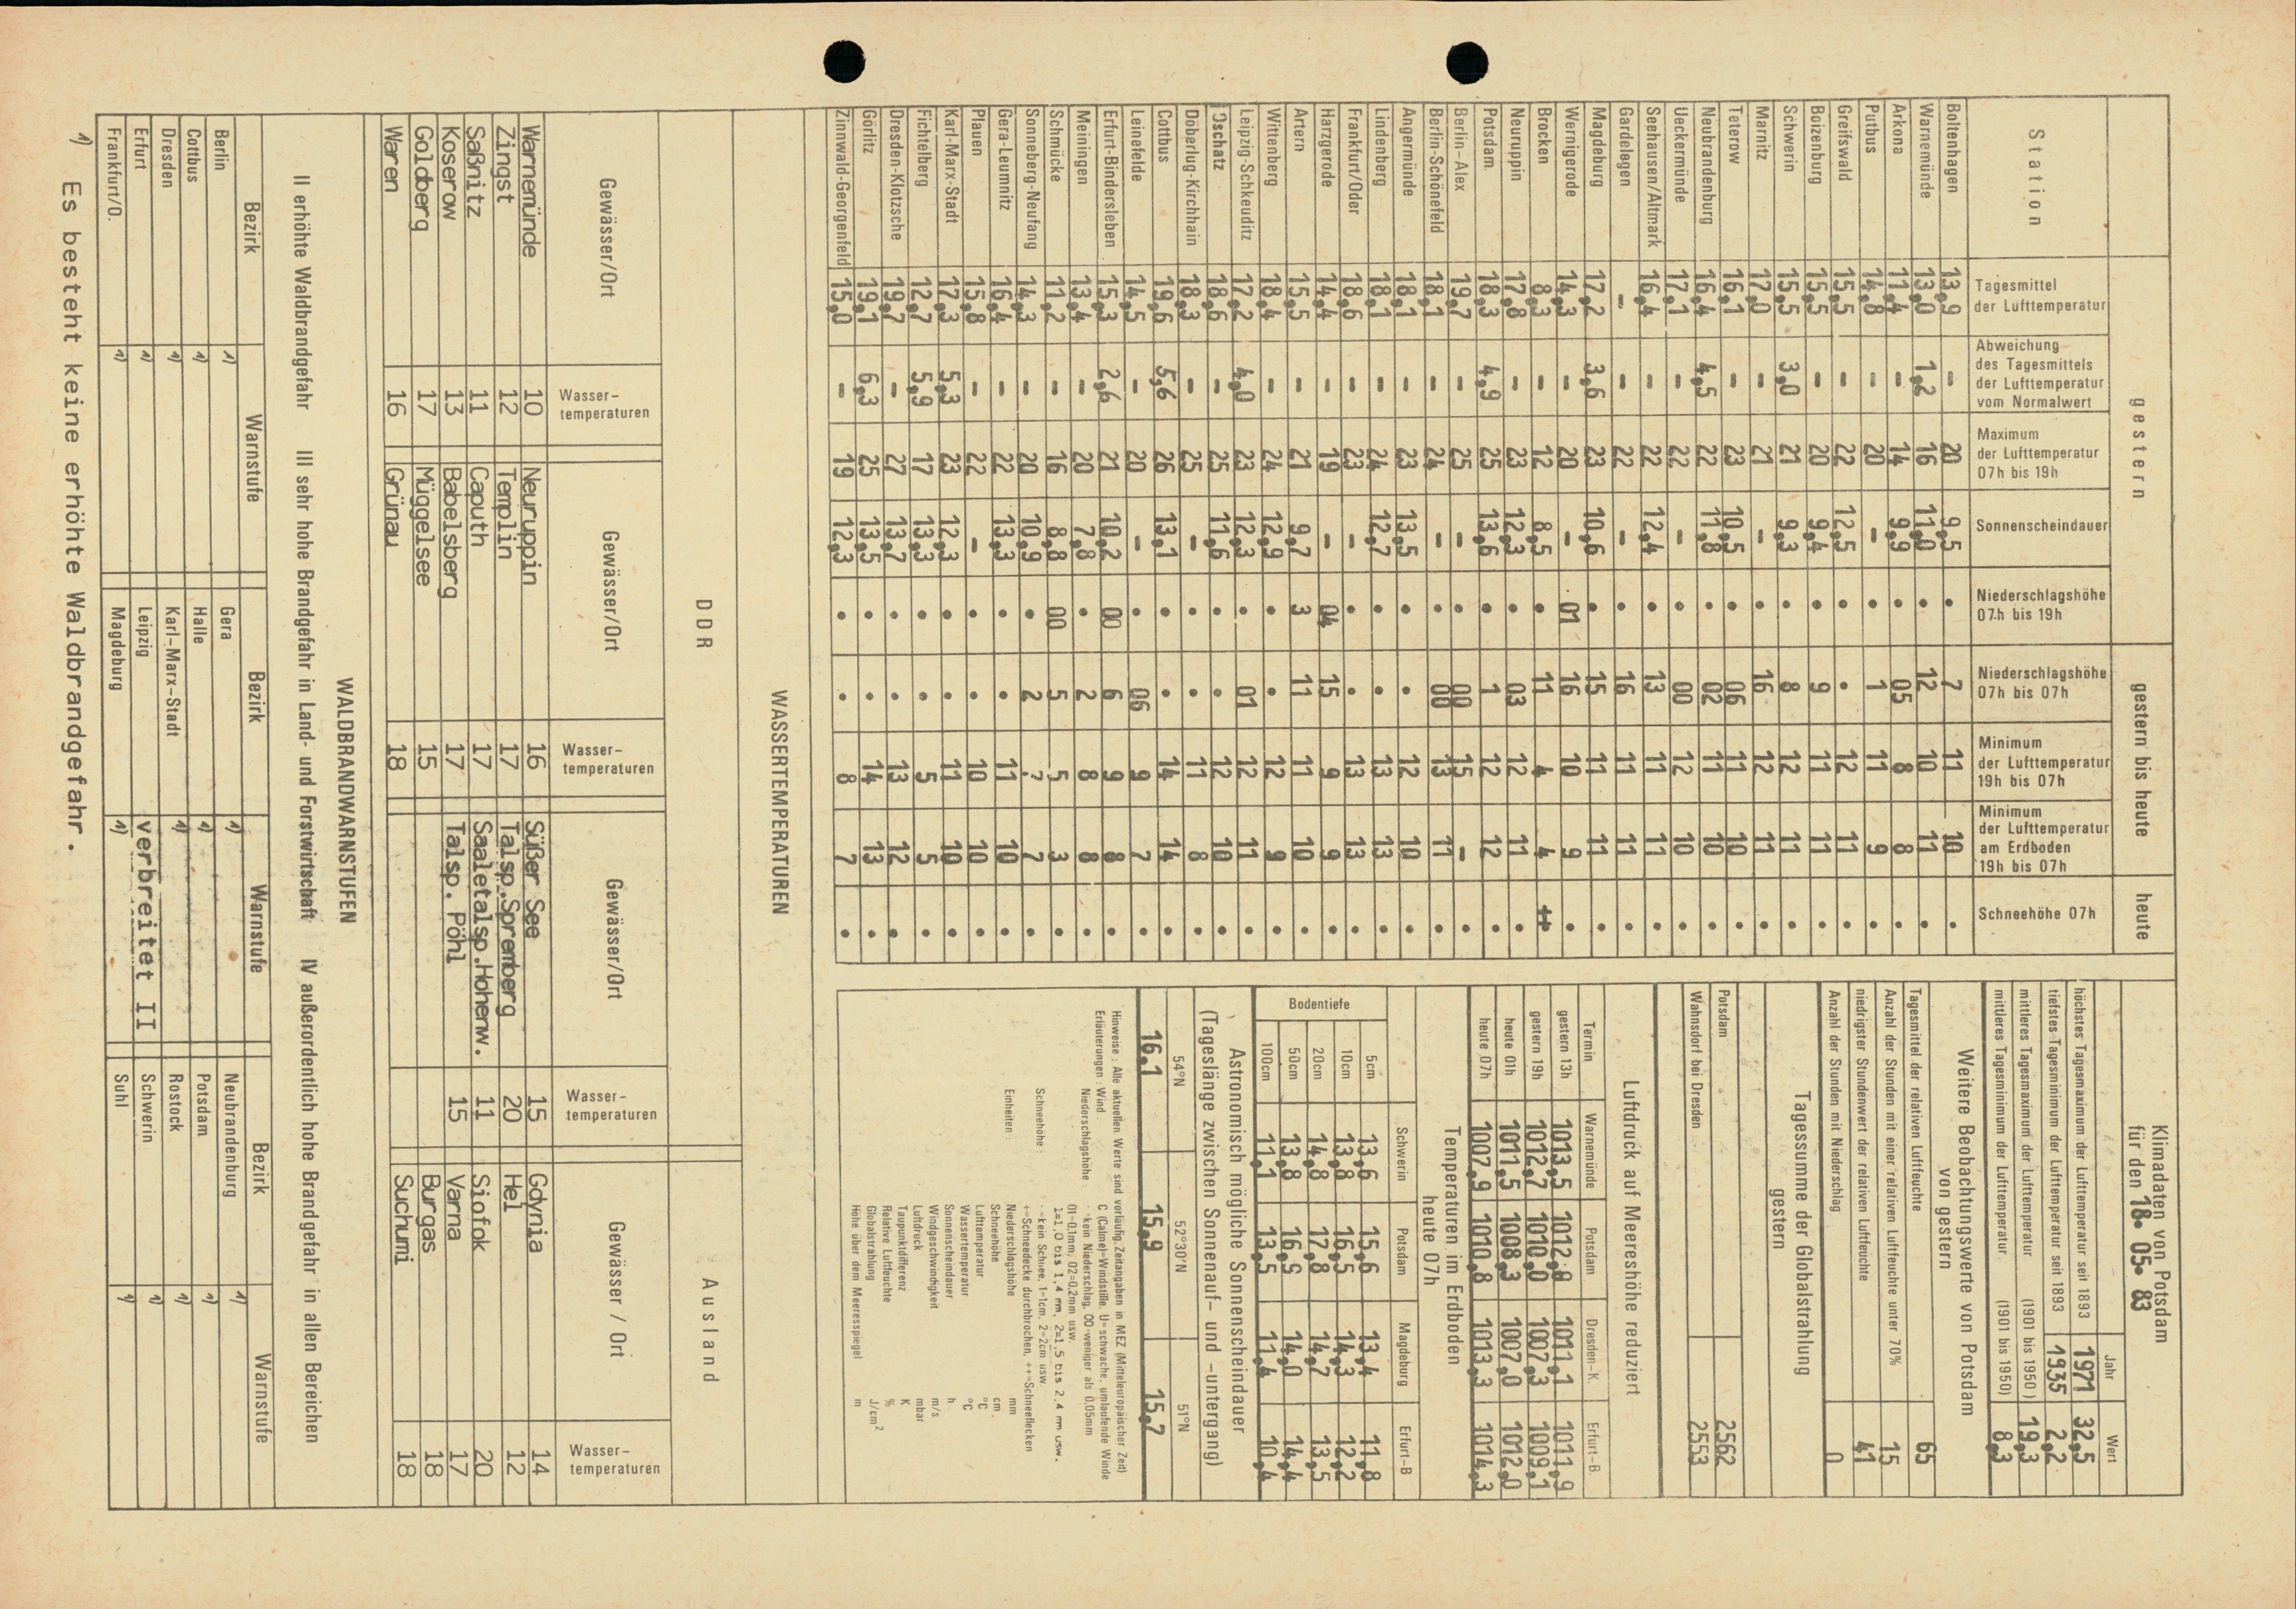 gestern gestern bis heute heute
Station
Tagesmittel der Lufttemperatur
Abweichung des Tagesmittels der Lufttemperatur vom Normalwert
Maximum der Lufttemperatur 07h bis 19h
Sonnenscheindauer
Niederschlagshöhe 07h bis 19h
Niederschlagshöhe 07h bis 07h
Minimum der Lufttemperatur 19h bis 07h
Minimum der Lufttemperatur am Erdboden 19h bis 07h
Schneehöhe 07h
Boltenhagen 13,9 - 20 9,5 • 7 11 10 •
Warnemünde 13,0 1,2 16 11,0 • 12 10 11 •
Arkona 11,4 - 14 9,9 • 05 8 8 •
Putbus 14,8 - 20 - • 1 11 9 •
Greifswald 15,5 - 22 12,5 • • 12 11 •
Boizenburg 15,5 - 20 9,4 • 9 11 11 •
Schwerin 15,5 3,0 21 9,3 • 8 12 11 •
Marnitz 17,0 - 21 - • 16 12 11 •
Teterow 16,1 - 23 10,5 • 06 11 10 •
Neubrandenburg 16,4 4,5 22 11,8 • 02 11 10 •
Ueckermünde 17,1 - 22 - • 00 12 10 •
Seehausen/Altmark 16,4 - 22 12,4 • 13 11 11 •
Gardelegen - - 22 - • 16 11 11 •
Magdeburg 17,2 3,6 23 10,6 • 15 11 11 •
Wernigerode 14,3 - 20 - 01 16 10 9 •
Brocken 8,3 - 12 8,5 • 11 4 4 ++
Neuruppin 17,8 - 23 12,3 • 03 12 11 •
Potsdam 18,3 4,9 25 13,6 • 1 12 12 •
Berlin-Alex 19,7 - 25 - • 00 15 - •
Berlin-Schönefeld 18,1 - 24 - • 00 13 11 •
Angermünde 18,1 - 23 13,5 • • 12 10 •
Lindenberg 18,1 - 24 12,7 • • 13 13 •
Frankfurt/Oder 18,6 - 23 - • • 13 13 •
Harzgerode 14,4 - 19 - 04 15 9 9 •
Artern 15,5 - 21 9,7 3 11 11 10 •
Wittenberg 18,4 - 24 12,9 • • 12 9 •
Leipzig-Schkeuditz 17,2 4,0 23 12,3 • 01 12 11 •
Oschatz 18,6 - 25 11,6 • • 12 10 •
Doberlug-Kirchhain 18,3 - 25 - • • 11 8 •
Cottbus 19,6 5,6 26 13,1 • • 14 14 •
Leinefelde 14,5 - 20 - • 06 9 7 •
Erfurt-Bindersleben 15,3 2,6 21 10,2 00 6 9 8 •
Meiningen 13,4 - 20 7,8 • 2 8 8 •
Schmücke 11,2 - 16 8,8 00 5 5 3 •
Sonneberg-Neufang 14,3 - 20 10,9 • 2 7 7 •
Gera-Leumnitz 16,4 - 22 13,3 • • 11 10 •
Plauen 15,8 - 22 - • • 10 10 •
Karl-Marx-Stadt 17,3 5,3 23 12,3 • • 11 10 •
Fichtelberg 12,7 5,9 17 13,3 • • 5 5 •
Dresden-Klotzsche 19,7 - 27 13,7 • • 13 12 •
Görlitz 19,1 6,3 25 13,5 • • 14 13 •
Zinnwald-Georgenfeld 15,0 - 19 12,3 • • 8 7 •
Klimadaten von Potsdam
für den 18. 05. 83
Jahr Wert
höchstes Tagesmaximum der Lufttemperatur seit 1893 1971 32,5
tiefstes Tagesminimum der Lufttemperatur seit 1893 1935 2,2
mittleres Tagesmaximum der Lufttemperatur (1901 bis 1950) 19,3
mittleres Tagesminimum der Lufttemperatur (1901 bis 1950) 8,3
Weitere Beobachtungswerte von Potsdam
von gestern
Tagesmittel der relativen Luftfeuchte 65
Anzahl der Stunden mit einer relativen Luftfeuchte unter 70% 15
niedrigster Stundenwert der relativen Luftfeuchte 41
Anzahl der Stunden mit Niederschlag 0
Tagessumme der Globalstrahlung
gestern
Potsdam 2562
Wahnsdorf bei Dresden 2553
Luftdruck auf Meereshöhe reduziert
Termin Warnemünde Potsdam Dresden-K. Erfurt-B.
gestern 13h 1013,5 1012,0 1011,1 1011,9
gestern 19h 1012,7 1010,0 1007,3 1009,1
heute 01h 1011,5 1008,3 1007,0 1012,0
heute 07h 1007,9 1010,8 1013,3 1014,3
Temperaturen im Erdboden
heute 07h
Schwerin Potsdam Magdeburg Erfurt-B
Bodentiefe
5cm 13,6 15,6 13,4 11,8
10cm 13,8 16,5 14,3 12,2
20cm 14,8 17,8 14,7 13,5
50cm 13,8 16,9 14,0 14,4
100cm 11,1 13,5 11,4 10,4
Astronomisch mögliche Sonnenscheindauer
(Tageslänge zwischen Sonnenauf- und -untergang)
54°N 52°30'N 51°N
16,1 15,9 15,7
Hinweise : Alle aktuellen Werte sind vorläufig. Zeitangaben in MEZ (Mitteleuropäischer Zeit)
Erläuterungen : Wind : C (Calme)=Windstille, U=schwache, umlaufende Winde
Niederschlagshöhe : ·=kein Niederschlag, 00=weniger als 0,05mm
01=0,1mm, 02=0,2mm usw.
1=1,0 bis 1,4 mm, 2=1,5 bis 2,4 mm usw.
Schneehöhe : ·=kein Schnee, 1=1cm, 2=2cm usw.
+=Schneedecke durchbrochen, ++=Schneeflecken
Einheiten : Niederschlagshöhe mm
Schneehöhe cm
Lufttemperatur °C
Wassertemperatur °C
Sonnenscheindauer h
Windgeschwindigkeit m/s
Luftdruck mbar
Taupunktdifferenz K
Relative Luftfeuchte %
Globalstrahlung J/cm²
Höhe über dem Meeresspiegel m
WASSERTEMPERATUREN
DDR Ausland
Gewässer/Ort Wasser-temperaturen Gewässer/Ort Wasser-temperaturen Gewässer/Ort Wasser-temperaturen Gewässer / Ort Wasser-temperaturen
Warnemünde 10 Neuruppin 16 Süßer See 15 Gdynia 14
Zingst 12 Templin 17 Talsp.Spremberg 20 Hel 12
Saßnitz 11 Caputh 17 Saaletalsp.Hohenw. 11 Siofok 20
Koserow 13 Babelsberg 17 Talsp. Pöhl 15 Varna 17
Goldberg 17 Müggelsee 15 Burgas 18
Waren 16 Grünau 18 Suchumi 18
WALDBRANDWARNSTUFEN
II erhöhte Waldbrandgefahr III sehr hohe Brandgefahr in Land- und Forstwirtschaft IV außerordentlich hohe Brandgefahr in allen Bereichen
Bezirk Warnstufe Bezirk Warnstufe Bezirk Warnstufe
Berlin 1) Gera 1) Neubrandenburg 1)
Cottbus 1) Halle 1) Potsdam 1)
Dresden 1) Karl-Marx-Stadt 1) Rostock 1)
Erfurt 1) Leipzig verbreitet II Schwerin 1)
Frankfurt/O. 1) Magdeburg 1) Suhl 1)
1) Es besteht keine erhöhte Waldbrandgefahr.